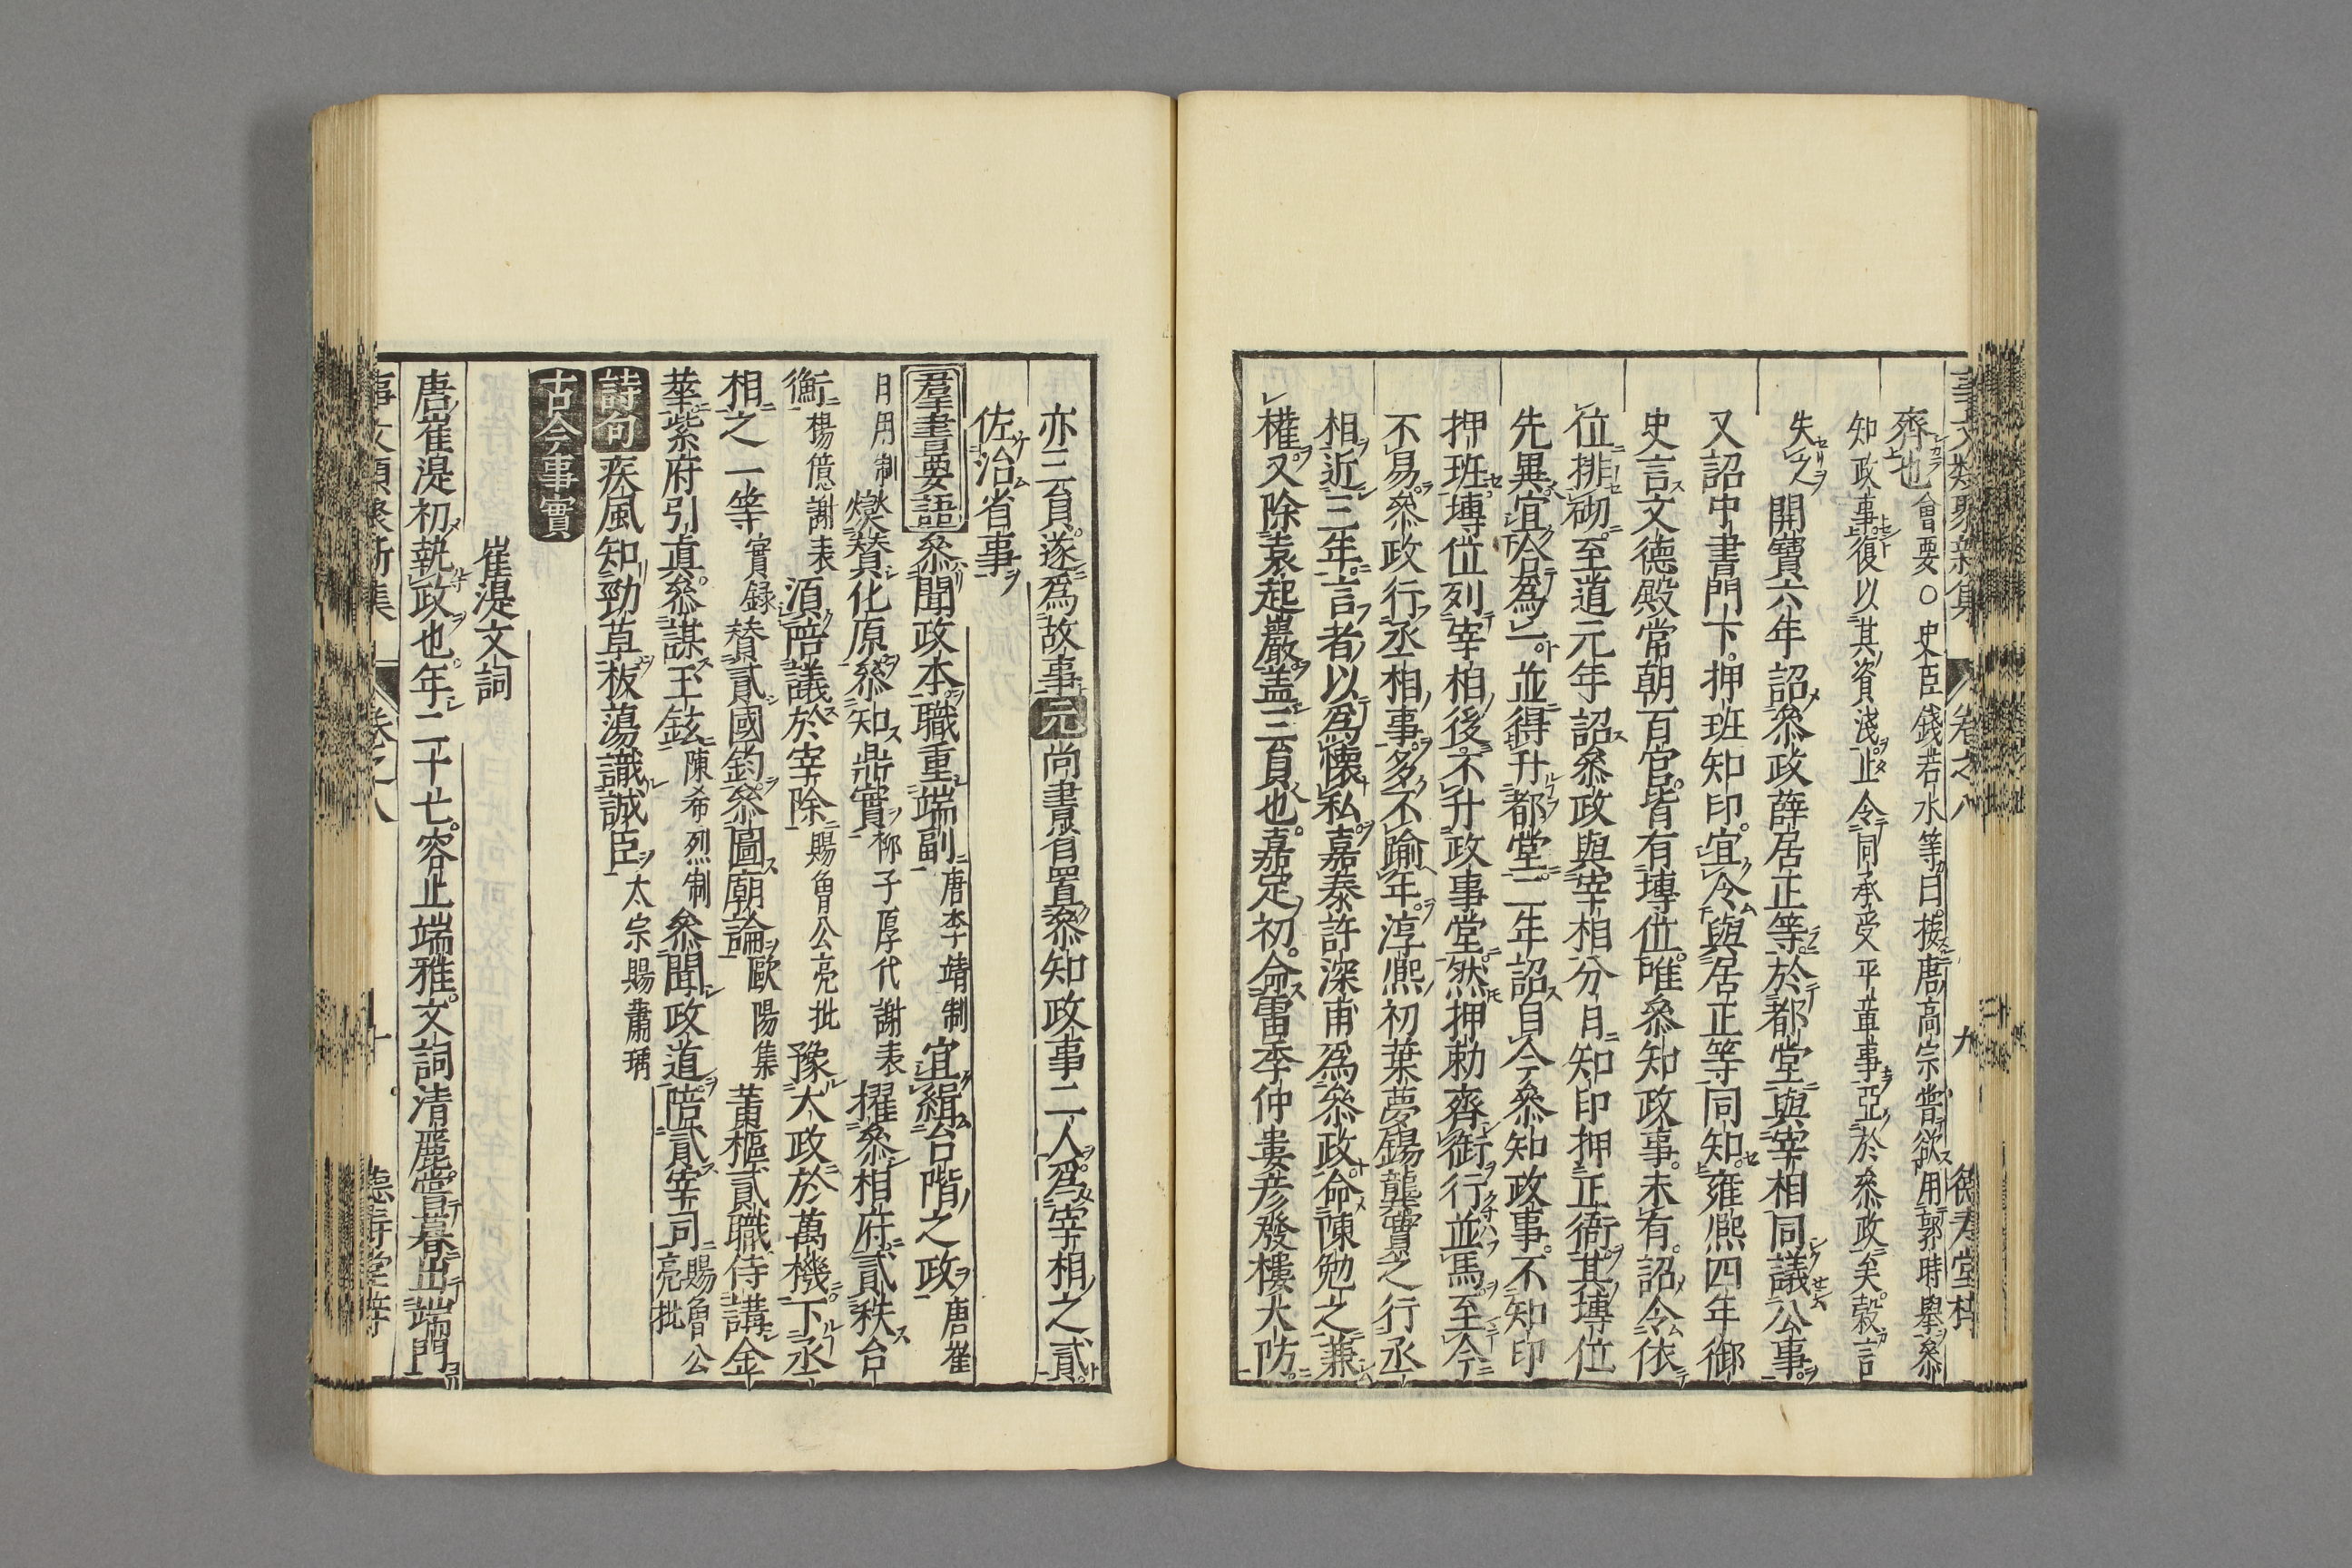 事文類聚新集 卷之八 九 德壽堂梓
齊也會要○史臣錢若水等曰按唐高宗嘗欲用郭時舉參
知政事復以其資淺止令同承受平章事亞於參政矣穀言
失之 開寶六年詔參政薛居正等於都堂與宰相同議公事
又詔中書門下押班知印宜令與居正等同知雍熙四年御
史言文德殿常朝百官皆有塼位唯參知政事未有詔令依
位排砌至道元年詔參政與宰相分日知印押正衙其塼位
先異宜合爲一並得升都堂二年詔自今參知政事不知印
押班塼位列宰相後不升政事堂然押勅齊銜行並馬至今
不易參政行丞相事多不踰年淳熙初葉夢錫龔實之行丞
相近三年言者以爲懷私嘉泰許深甫爲參政命陳勉之兼
權又除袁起巖蓋三員也嘉定初命雷季仲婁彦發樓大防
亦三員遂爲故事元尚書省置參知政事二人爲宰相之貳
佐治省事
羣書要語參聞政本職重端副唐李靖制宜緝台階之政唐崔
日用制燮賛化原參知鼎實柳子厚代謝表擢參相府貳秩台
衡楊億謝表湏陪議於宰除賜魯公亮批豫大政於萬機下丞
相之一等實録賛貳國鈞參圖廟論歐陽集䔥樞貳職侍講金
華紫府引真參謀玉鉉陳希烈制參聞政道陪貳宰司賜魯公亮批
詩句疾風知勁草板蕩識誠臣太宗賜蕭瑀
古今事實
崔湜文詞
唐崔湜初執政也年二十七容止端雅文詞清麗嘗暮出端門
事文類聚新集 卷之八 十 德壽堂梓